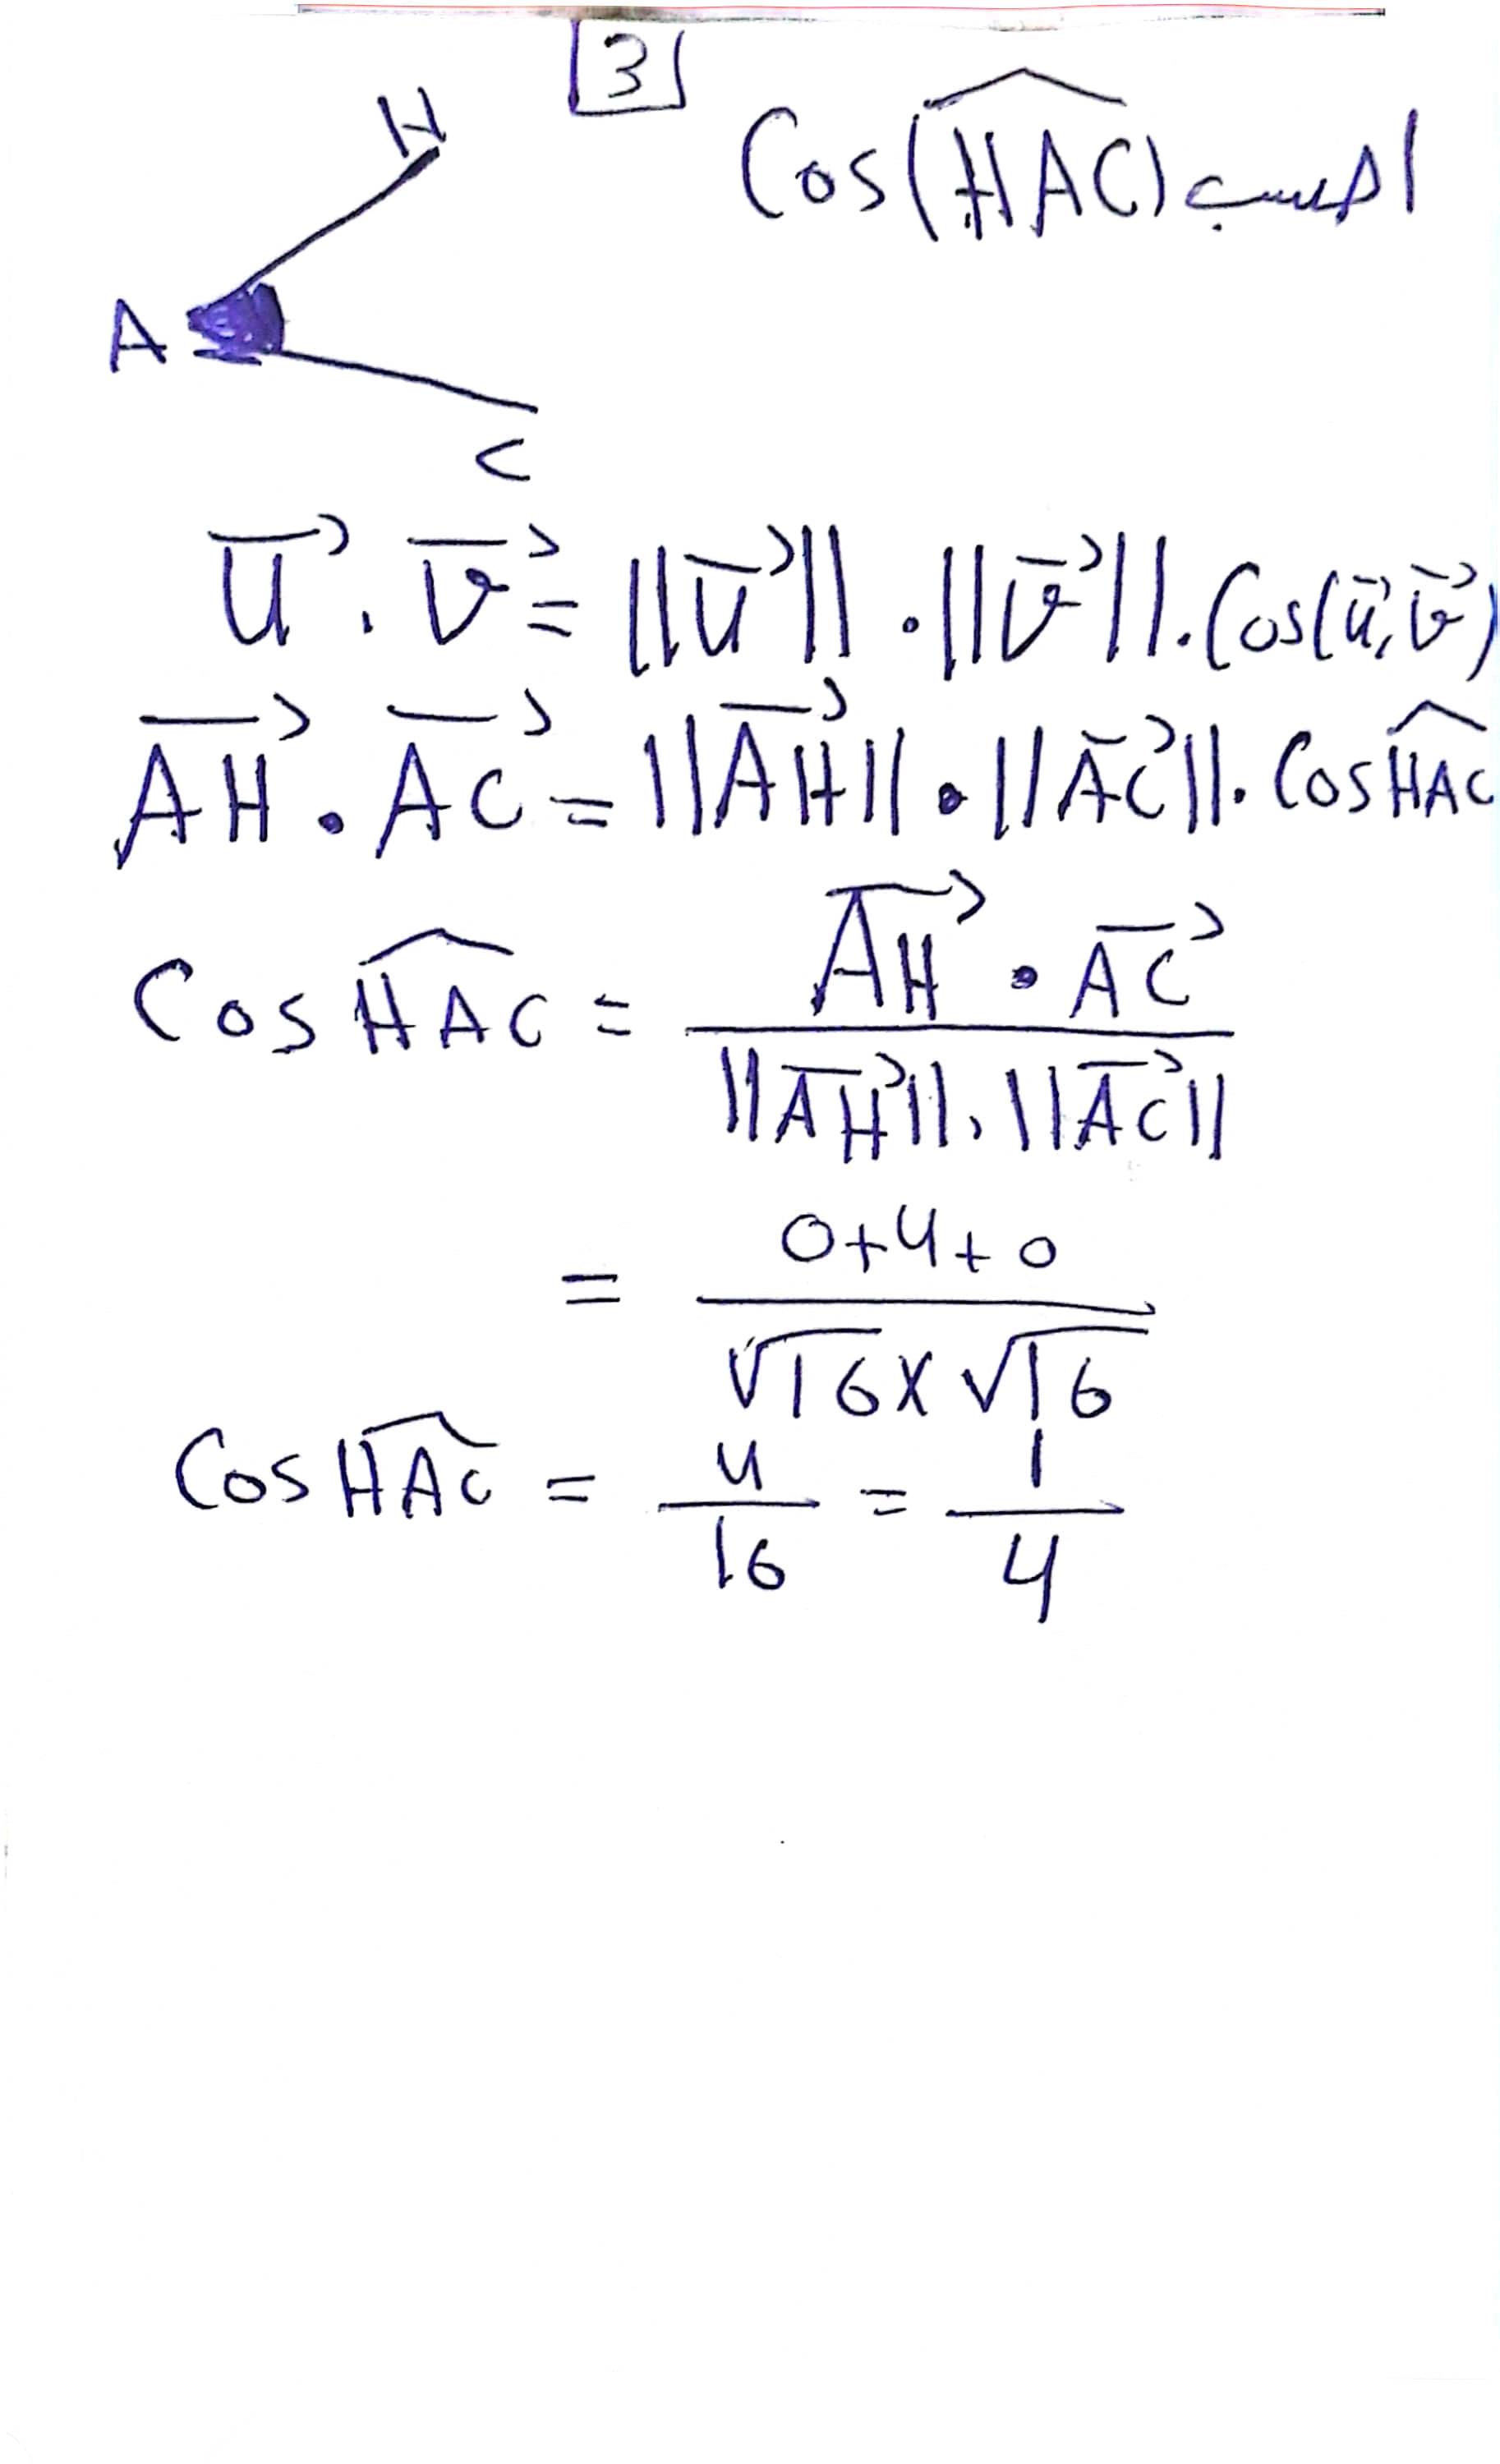 3
احسب Cos(HAC)
H
A
C
u⃗ . v⃗ = ||u⃗|| . ||v⃗|| . Cos(u⃗, v⃗)
AH⃗ . AC⃗ = ||AH⃗|| . ||AC⃗|| . Cos HAC
Cos HAC = AH⃗ . AC⃗ / ||AH⃗|| . ||AC⃗||
= 0+4+0 / √16 x √16
Cos HAC = 4/16 = 1/4